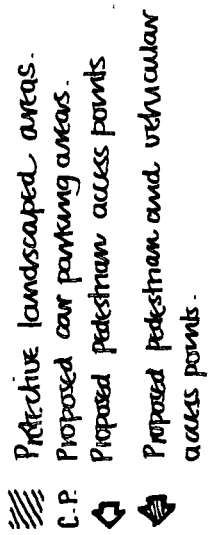 Protective landscaped areas.
C.P. Proposed car parking areas.
Proposed Pedestrian access points
Proposed pedestrian and vehicular
access points.